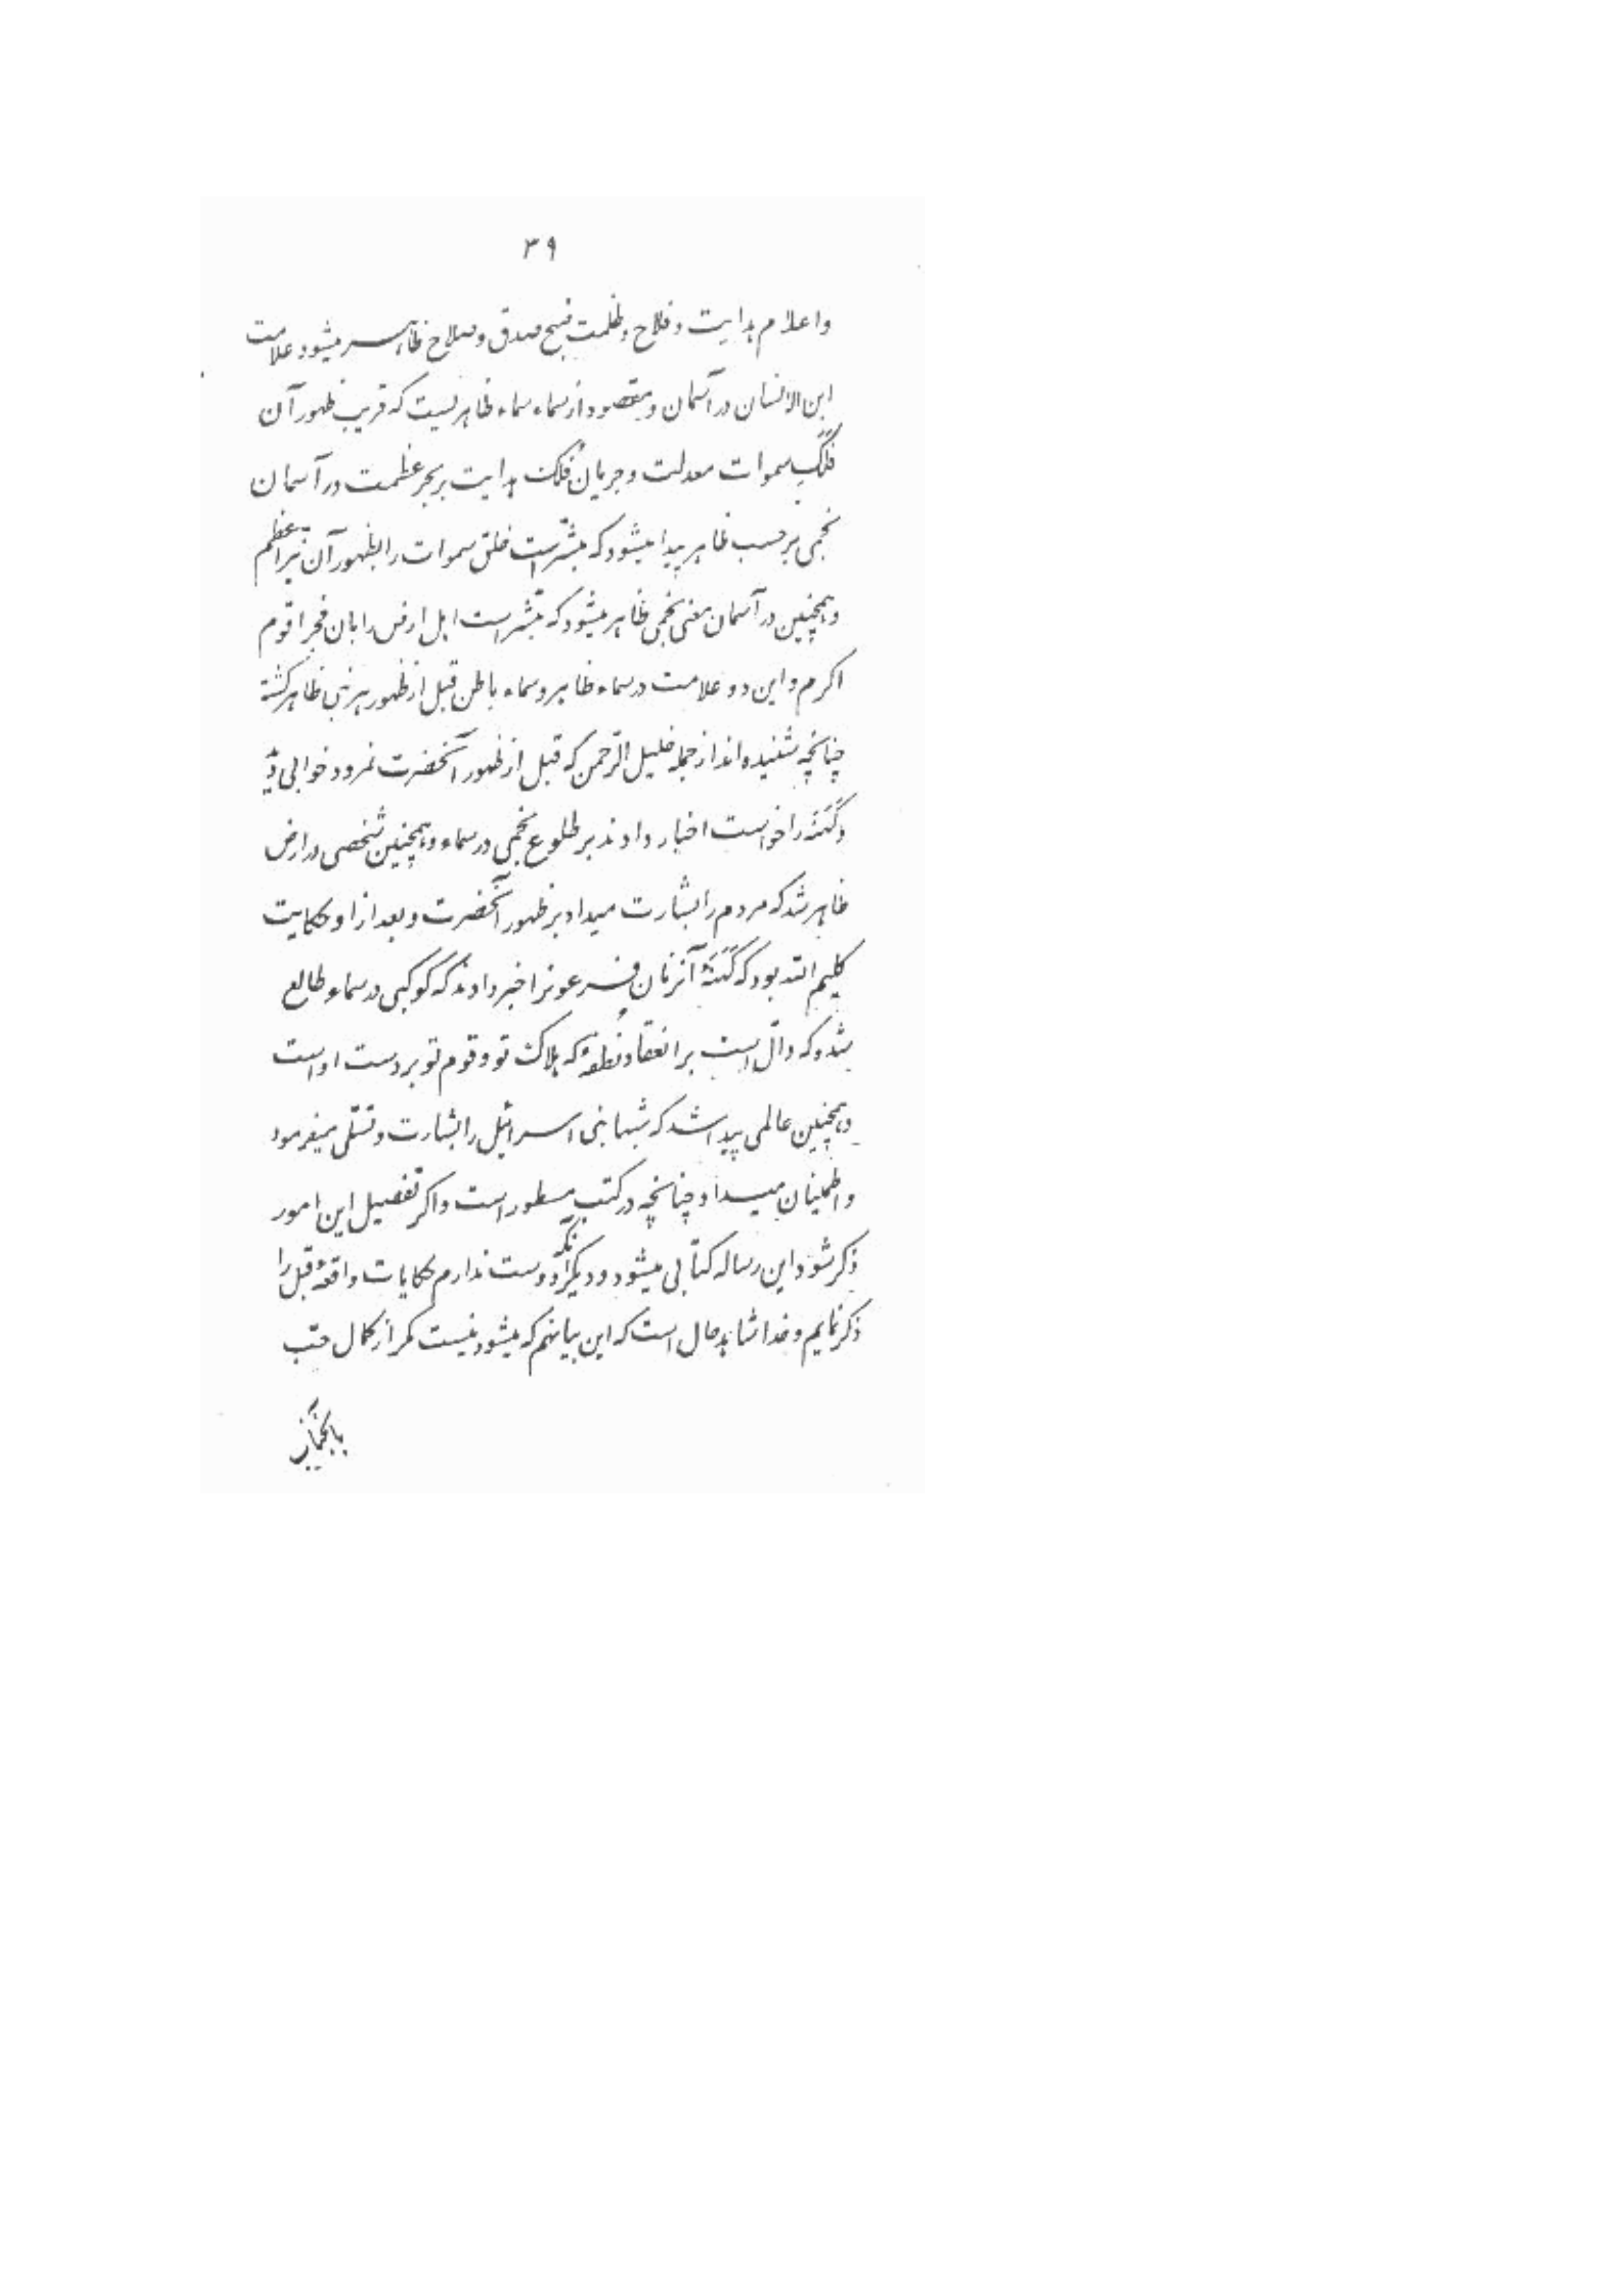 ۳۹
واعلام هدایت و فلاح و ظلمت صبح صدق و صلاح ظاهر میشود علامت
ابن الانسان در آسمان و مقصود از سماء سماء ظاهریست که قریب ظهور آن
فلک سموات معدلت و جریان فلک هدایت بر بحر عظمت در آسمان
نجمی بر حسب ظاهر پیدا میشود که مبشّر است خلق سموات را بظهور آن نیّر اعظم
و همچنین در آسمان معنی نجمی ظاهر میشود که مبشّر است اهل ارض را بان فجر اقوم
اکرم و این دو علامت در سماء ظاهر و سماء باطن قبل از ظهور هر نبی ظاهر گشته
چنانچه شنیده‌اند از جمله خلیل الرّحمن که قبل از ظهور آنحضرت نمرود خوابی دید
و کَهَنَه را خواست اخبار دادند بر طلوع نجمی در سماء و همچنین شخصی در ارض
ظاهر شد که مردم را بشارت میداد بر ظهور آنحضرت و بعد از او حکایت
کلیم اللّه بود که کَهَنَهٔ آنزمان فرعونرا خبر دادند که کوکبی در سماء طالع
شده که دالّ است بر انعقاد نُطفهٔ که هلاکت تو و قوم تو بر دست او است
و همچنین عالمی پیدا شد که شبها بنی اسرائیل را بشارت و تسلّی میفرمود
و اطمینان میداد چنانچه در کتب مسطور است و اگر تفصیل این امور
ذکر شود این رساله کتابی میشود و دیگر آنکه دوست ندارم حکایات واقعهٔ قبل را
ذکر نمایم و خدا شاهد حال است که این بیانهم که میشود نیست مگر از کمال حبّ
بآنجناب